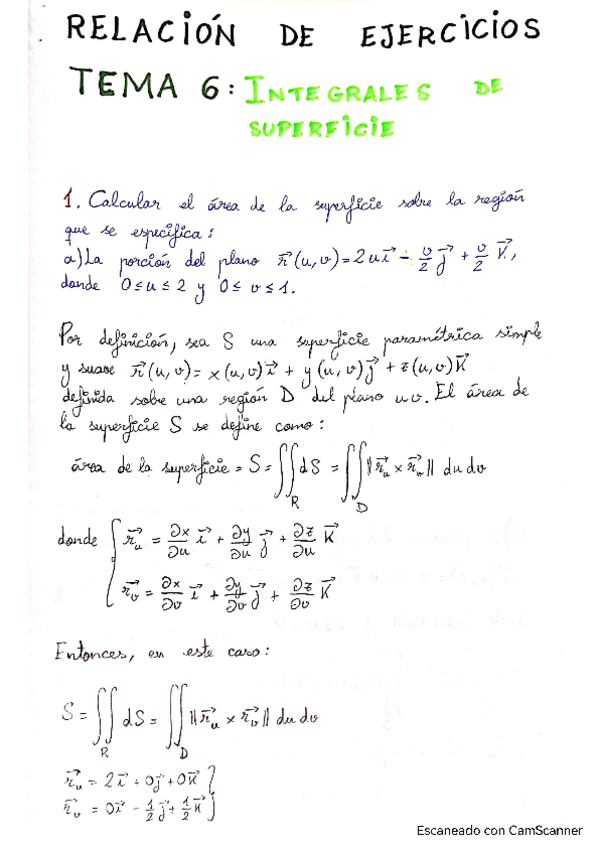 RELACIÓN DE EJERCICIOS
TEMA 6: INTEGRALES DE
SUPERFICIE
1. Calcular el área de la superficie sobre la región
que se especifica:
a) La porción del plano r⃗(u,v) = 2u i⃗ - v/2 j⃗ + v/2 k⃗,
donde 0≤u≤2 y 0≤v≤1.
Por definición, sea S una superficie paramétrica simple
y suave r⃗(u,v) = x(u,v) i⃗ + y(u,v) j⃗ + z(u,v) k⃗
definida sobre una región D del plano uv. El área de
la superficie S se define como:
área de la superficie = S = ∬_R dS = ∬_D ‖r⃗_u × r⃗_v‖ du dv
donde { r⃗_u = ∂x/∂u i⃗ + ∂y/∂u j⃗ + ∂z/∂u k⃗
r⃗_v = ∂x/∂v i⃗ + ∂y/∂v j⃗ + ∂z/∂v k⃗
Entonces, en este caso:
S = ∬_R dS = ∬_D ‖r⃗_u × r⃗_v‖ du dv
r⃗_u = 2 i⃗ + 0 j⃗ + 0 k⃗ }
r⃗_v = 0 i⃗ - 1/2 j⃗ + 1/2 k⃗
Escaneado con CamScanner